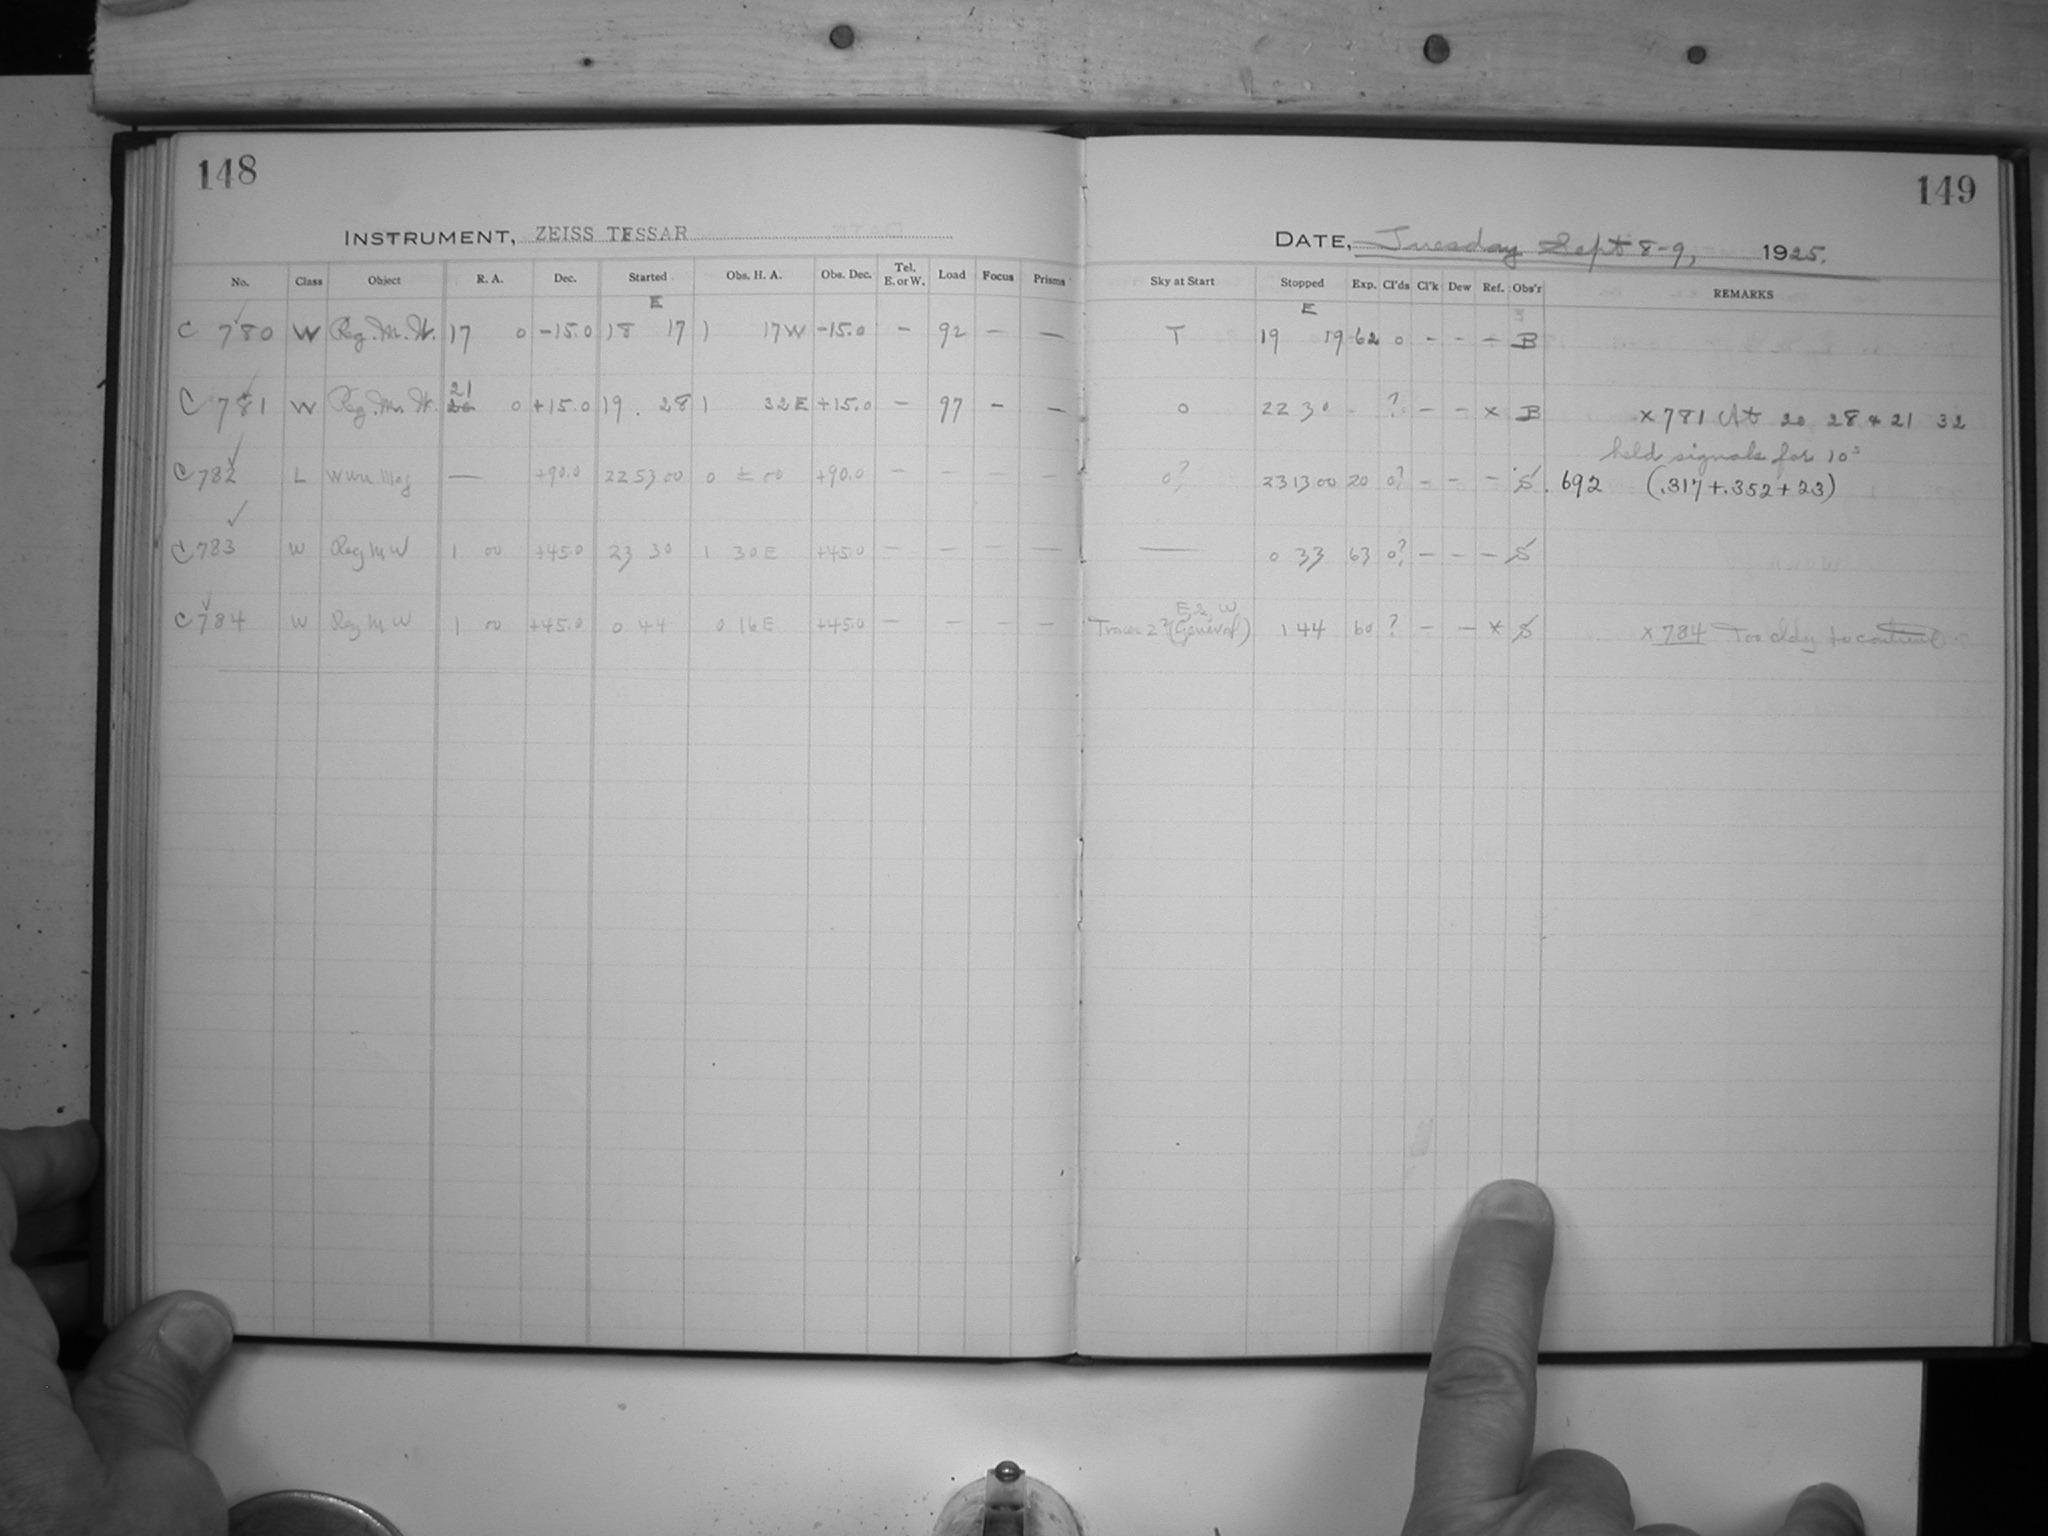 148
149
INSTRUMENT, ZEISS TESSAR
DATE, Tuesday Sept 8-9, 1925.
No. Class Object R. A. Dec. Started Obs. H. A. Obs. Dec. Tel. E. or W. Load Focus Prisms Sky at Start Stopped Exp. Cl'ds Cl'k Dew Ref. Obs'r REMARKS
E E
C 780 W Reg. M. W. 17 0 -15.0 18 17 1 17 W -15.0 - 92 - - T 19 19 62 0 - - - B
21
C 781 W Reg. M. W. 0 +15.0 19. 28 1 32 E +15.0 - 97 - - 0 22 30 - ? - - x B x 781 At 20 28 & 21 32
held signals for 10s
C 782 L — +90.0 22 53 00 0 ± 00 +90.0 - - - - 0? 23 13 00 20 0? - - - S .692 (.317+.352+23)
C 783 W Reg M W 1 00 +45.0 23 30 1 30 E +45.0 - - - - — 0 33 63 0? - - - S
E & W
C 784 W Reg M W 1 00 +45.0 0 44 0 16 E +45.0 - - - - Traces 2? (General) 1 44 60 ? - - x S x 784 Too cldy to continue